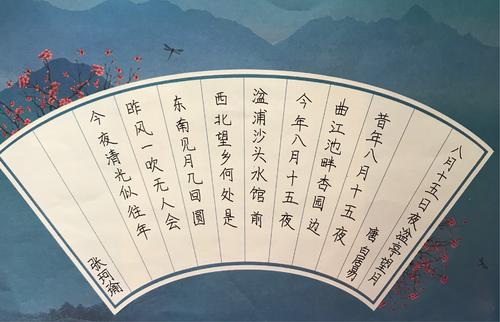 八月十五日夜湓亭望月
唐 白居易
昔年八月十五夜
曲江池畔杏园边
今年八月十五夜
湓浦沙头水馆前
西北望乡何处是
东南见月几回圆
昨风一吹无人会
今夜清光似往年
张珂瑜